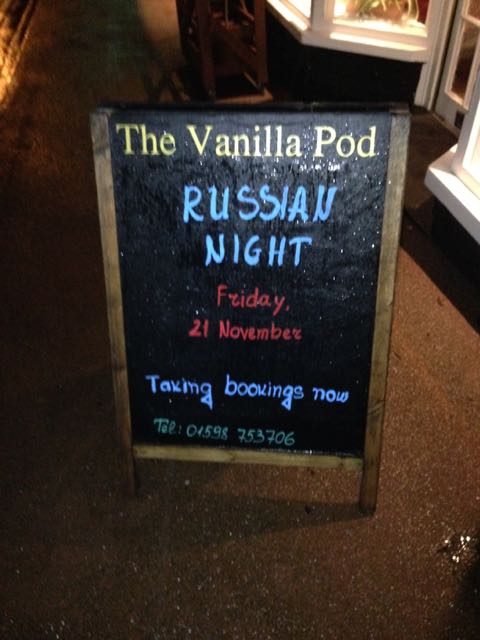 The Vanilla Pod
RUSSIAN
NIGHT
Friday,
21 November
Taking bookings now
Tel: 01598 753706